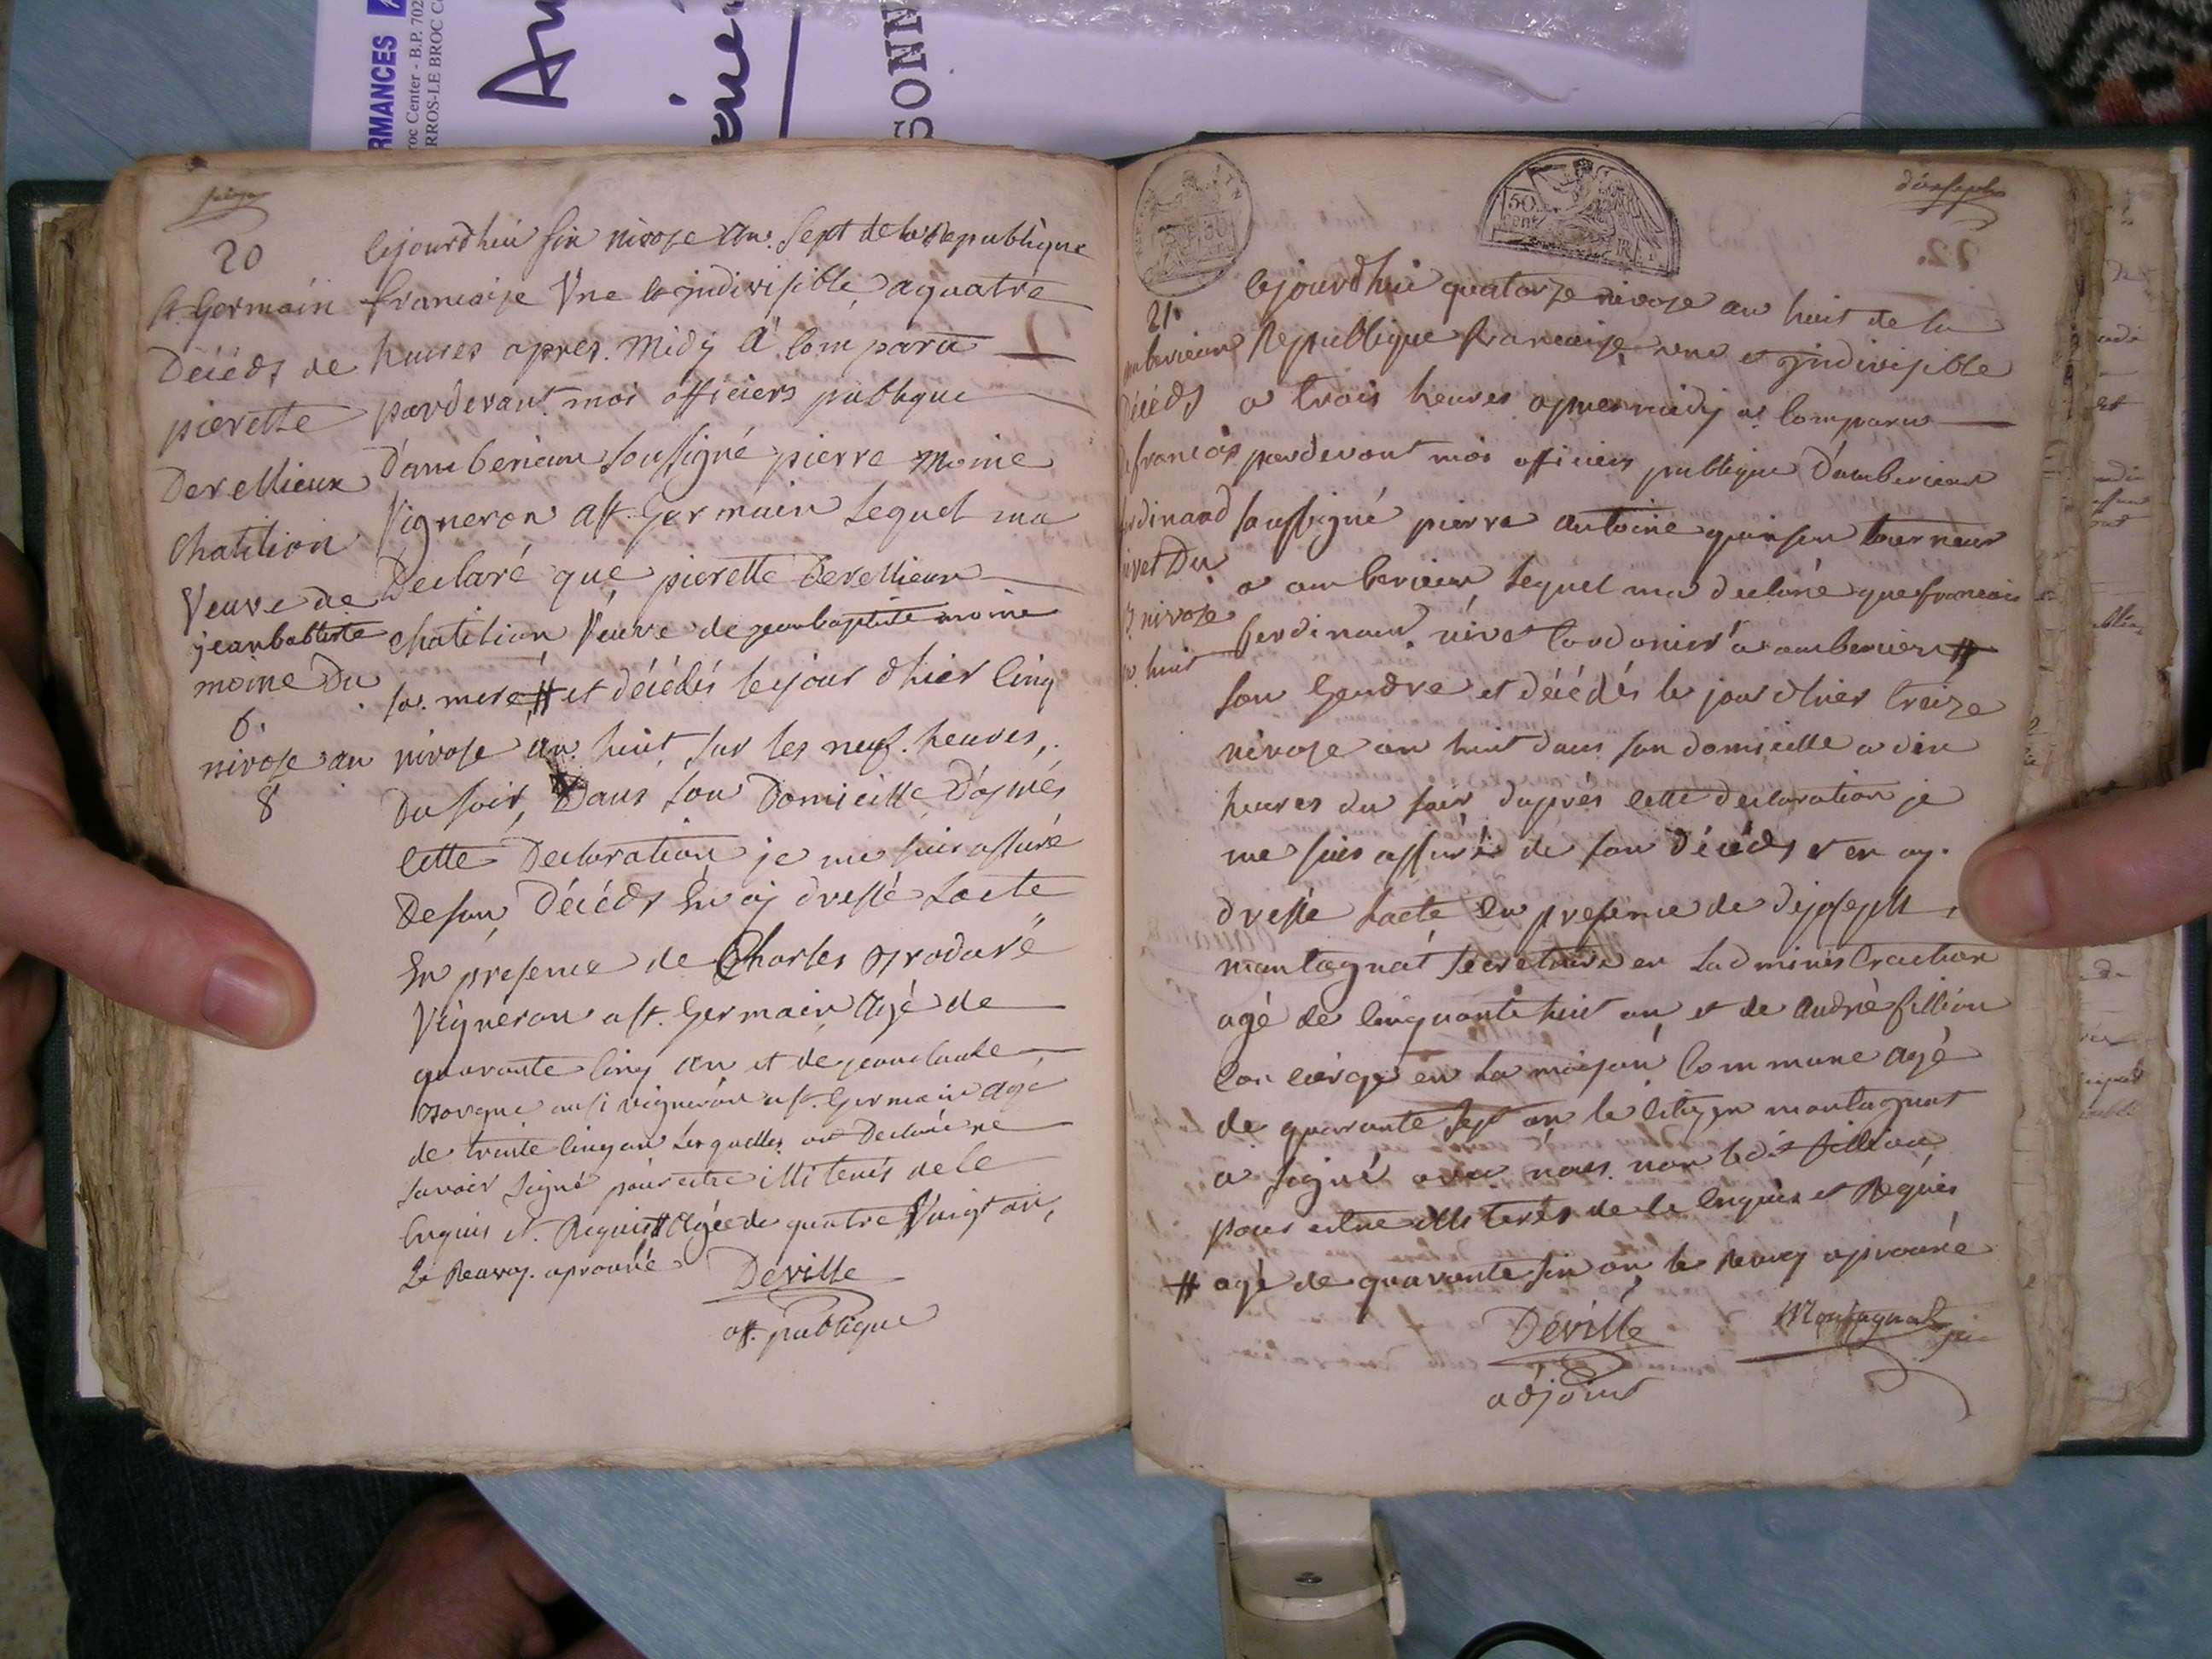 RMANCES
roc Center - B.P. 702
RROS-LE BROC C
An
SONN
20
St. Germain
Décéds de
pierette
Derellieux
Chatilion
Veuve de
jeanbattiste
moine Du
6.
nivose an
8
Cejourdhui six nivose an. Sept de la Republique
francaise Une et jndivisible, a quatre
heures apres. Midÿ A comparu
pardevant moi officiers publique
D'amberieux soussigné pierre Moine
Vigneron a st. Germain Lequel ma
Declaré que pierette Derellieux
Chatilion Veuve de jeanbaptiste moine
sa. mere # et décédés le jour dhier cinq
nivose an huit sur les neuf. heures,
Du soir, Dans son Domicille D'aprés
cette Declaration je me suis assuré
De son Décéds En aÿ dressé Lacte
En presence de Charles
Vigneron a st. Germain Agé de
quarante cinq an et de jean claude
ausi vigneron a st. Germain agé
de trente cinq an Lesquelles on Declaré ne
savoir signé pour etre illiterés de ce
Enquis et. Requis # Agée de quatre Vingt an,
Le Renvoy. aprouvé
Deville
off. publique
d'ossepht
50
cent
R. F.
21.
amberieux
Décéds
de francois
ferdinand
nivet Du
nivose
an huit
Cejourdhui quatorze nivose an huit de la
Republique francaise une et jndivisible
a trois heures apres midÿ a comparu
pardevant moi officiers publique D'amberieux
soussigné pierre antoine quinson tourneur
a amberieux, Lequel ma declaré que francois
ferdinand. nivet Cordonier a amberieux #
son Gendre et décédés le jour dhier treize
nivose an huit dans son domicille a dix
heures du soir, daprés cette declaration je
me suis assuré de son Décéds et en ay.
dressé Lacte en presence de dejosepht,
montagnat secretaire en Ladministraction
agé de cinquante huit an, et de andré fillion
Concierge en La maison Commune agé
de quarante sept an le citoyen montagnat
a signé avec nous non led. fillion
pour estre illiterés de ce Enquis et Requis
# agé de quarante six an, le Renvoy aprouvé
Deville
adjoint
Montagnat